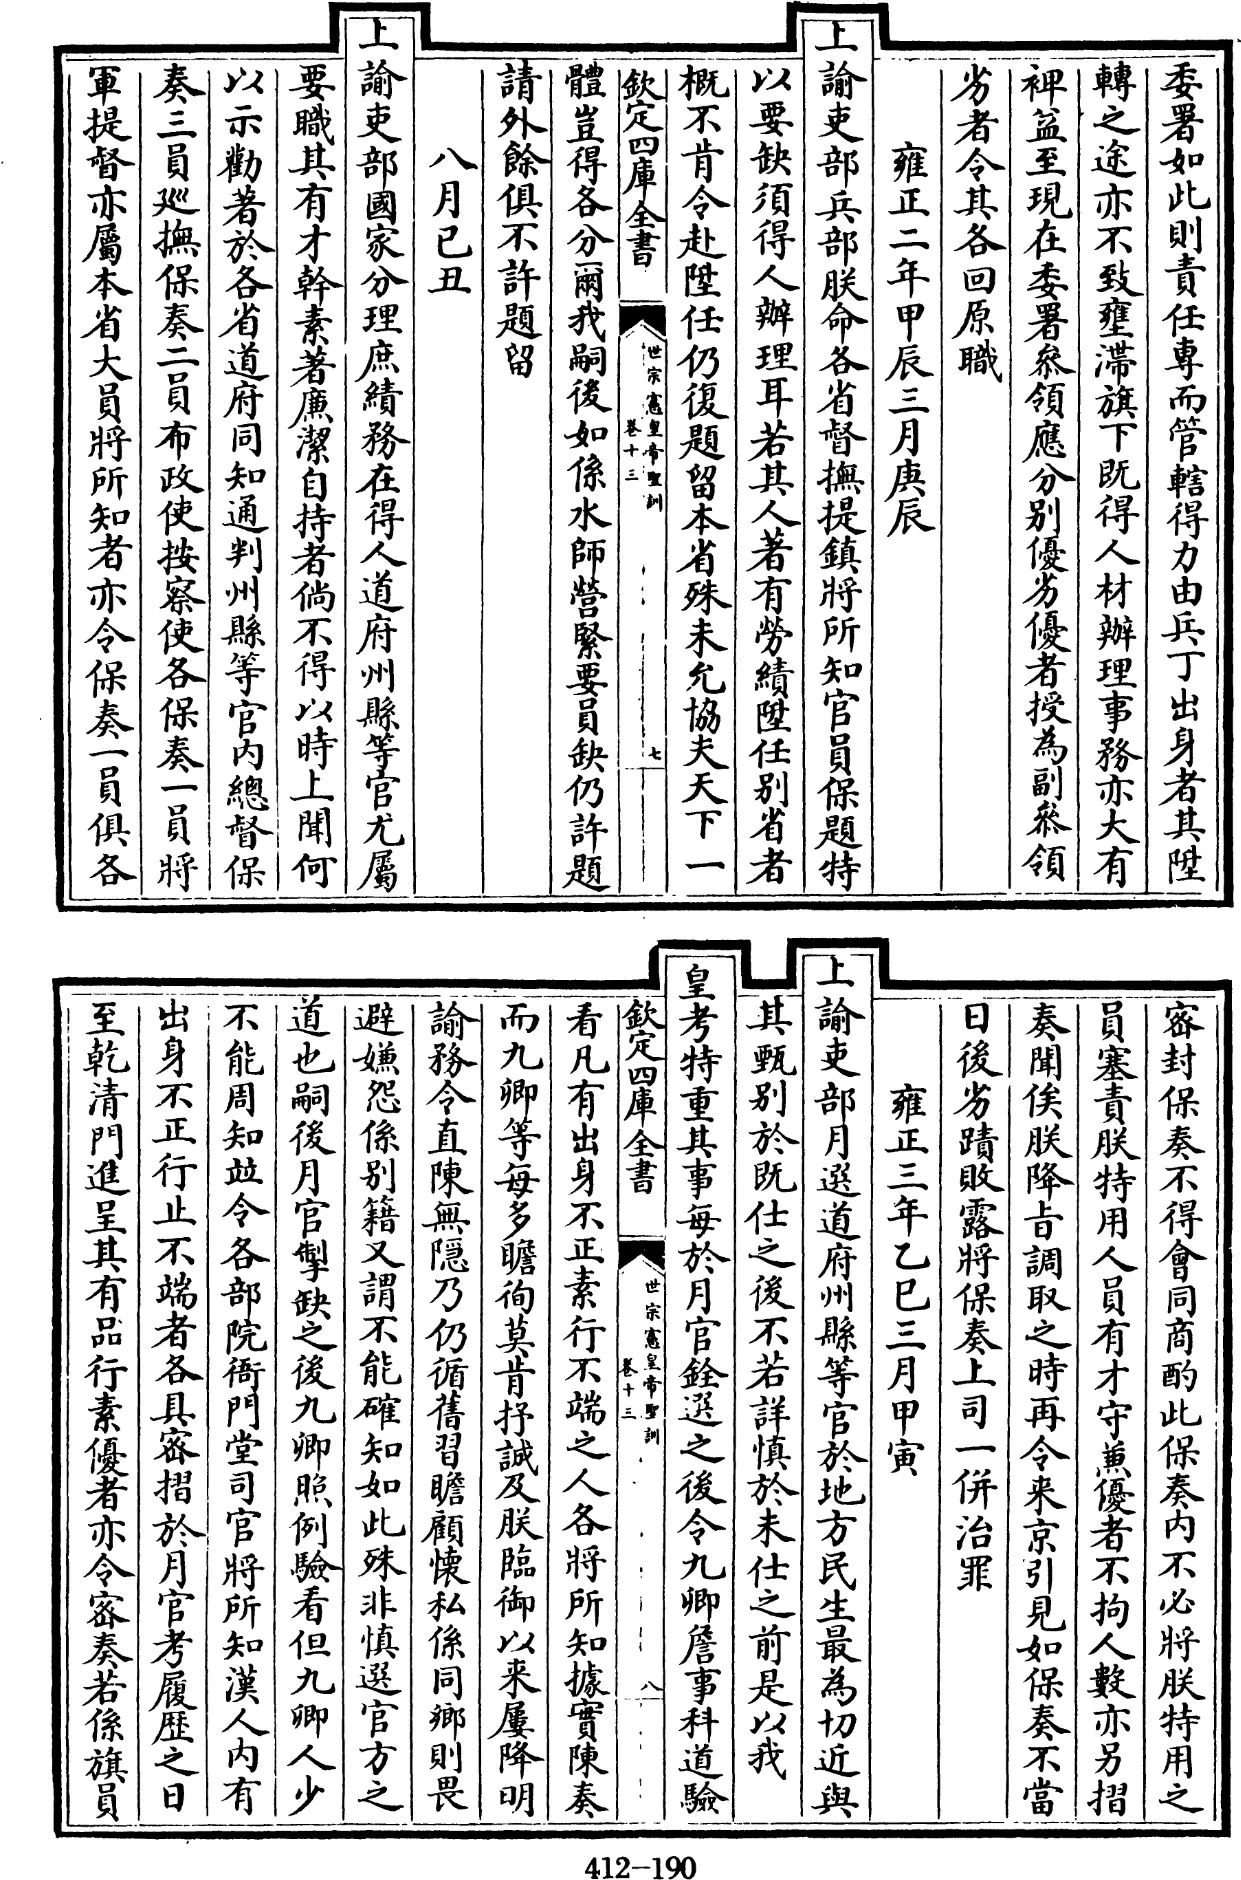 委署如此則責任專而管轄得力由兵丁出身者其陞
轉之途亦不致壅滯旗下既得人材辦理事務亦大有
裨益至現在委署叅領應分别優劣優者授為副叅領
劣者令其各回原職
雍正二年甲辰三月庚辰
上諭吏部兵部朕命各省督撫提鎮將所知官員保題特
以要缺須得人辦理耳若其人著有勞績陞任别省者
概不肯令赴陞任仍復題留本省殊未允協夫天下一
欽定四庫全書
世宗憲皇帝聖訓
卷十三
七
體豈得各分爾我嗣後如係水師營緊要員缺仍許題
請外餘俱不許題留
八月己丑
上諭吏部國家分理庶績務在得人道府州縣等官尤屬
要職其有才幹素著廉潔自持者倘不得以時上聞何
以示勸著於各省道府同知通判州縣等官內總督保
奏三員廵撫保奏二員布政使按察使各保奏一員將
軍提督亦屬本省大員將所知者亦令保奏一員俱各
密封保奏不得會同商酌此保奏内不必將朕特用之
員塞責朕特用人員有才守兼優者不拘人數亦另摺
奏聞俟朕降旨調取之時再令来京引見如保奏不當
日後劣蹟敗露將保奏上司一併治罪
雍正三年乙巳三月甲寅
上諭吏部月選道府州縣等官於地方民生最為切近與
其甄别於既仕之後不若詳慎於未仕之前是以我
皇考特重其事每於月官銓選之後令九卿詹事科道驗
欽定四庫全書
世宗憲皇帝聖訓
卷十三
八
看凡有出身不正素行不端之人各將所知據實陳奏
而九卿等每多瞻徇莫肯抒誠及朕臨御以来屢降明
諭務令直陳無隱乃仍循舊習瞻顧懷私係同鄉則畏
避嫌怨係别籍又謂不能確知如此殊非慎選官方之
道也嗣後月官掣缺之後九卿照例驗看但九卿人少
不能周知並令各部院衙門堂司官將所知漢人内有
出身不正行止不端者各具密摺於月官考履歷之日
至乾清門進呈其有品行素優者亦令密奏若係旗員
412-190